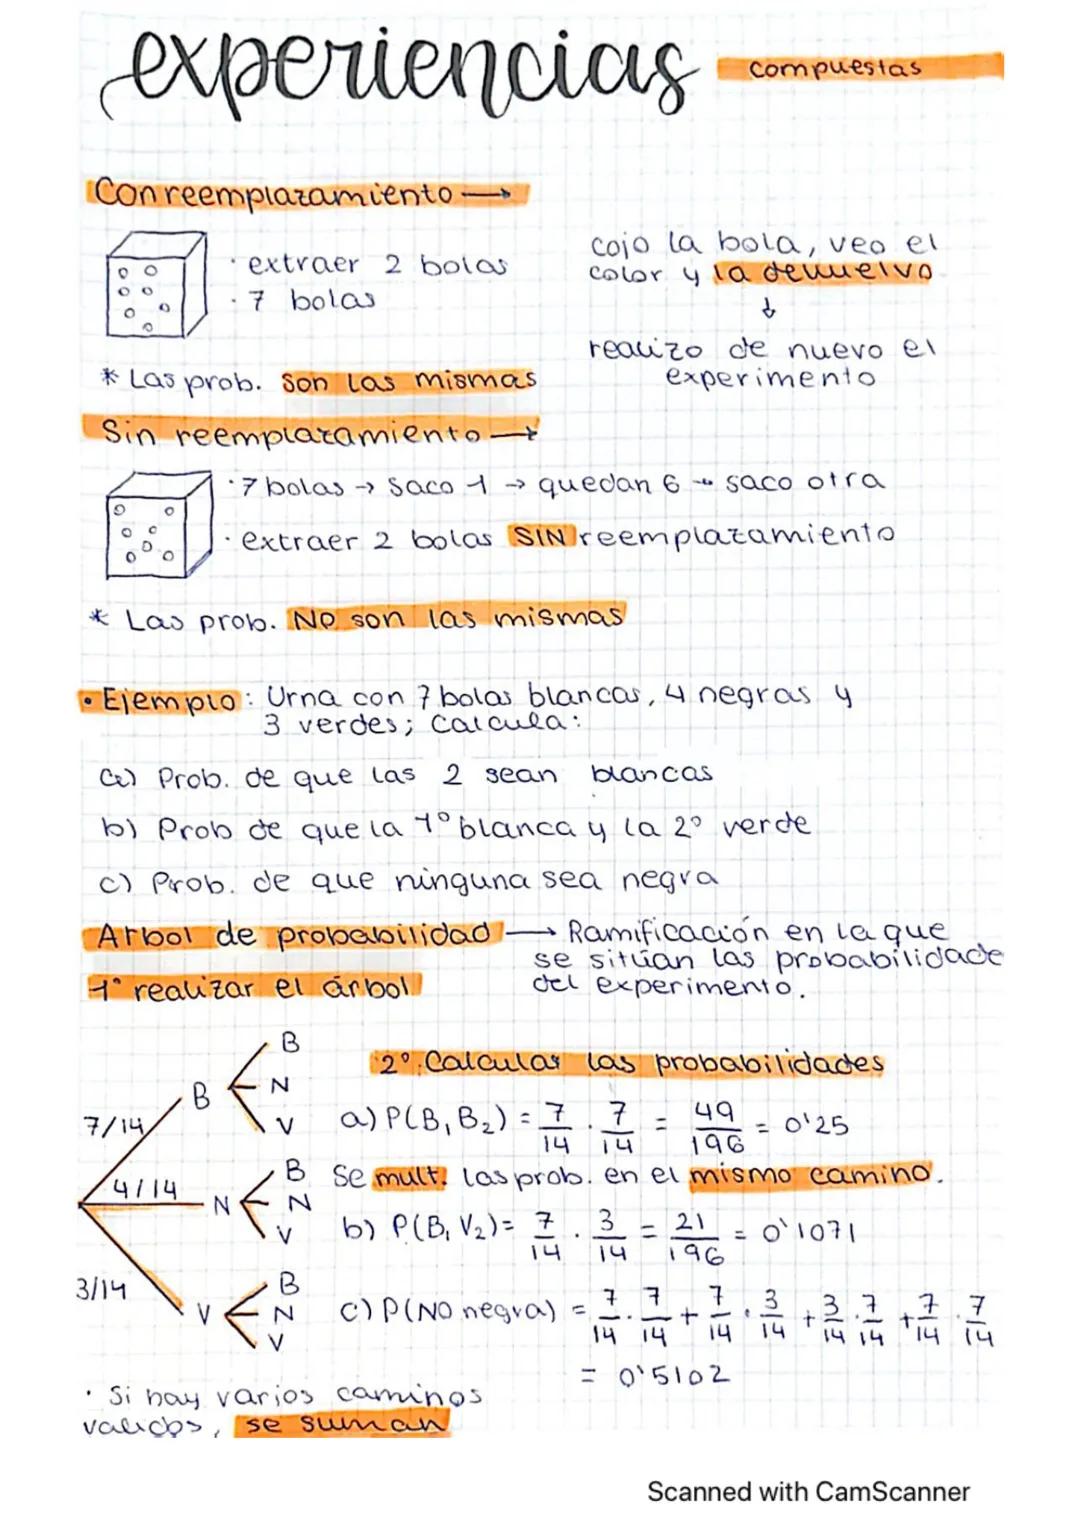 experiencias compuestas
Con reemplazamiento →
· extraer 2 bolas
· 7 bolas
cojo la bola, veo el
color y la devuelvo
↓
realizo de nuevo el
experimento
* Las prob. son las mismas
Sin reemplazamiento →
· 7 bolas → saco 1 → quedan 6 → saco otra
· extraer 2 bolas SIN reemplazamiento
* Las prob. NO son las mismas
• Ejemplo: Urna con 7 bolas blancas, 4 negras y
3 verdes; calcula:
a) Prob. de que las 2 sean blancas
b) Prob de que la 1º blanca y la 2º verde
c) Prob. de que ninguna sea negra
Arbol de probabilidad → Ramificación en la que
se sitúan las probabilidade
del experimento.
1º realizar el árbol
2º Calcular las probabilidades
7/14 B B N V
4/14 N B N V
3/14 V B N V
a) P(B₁ B₂) = 7/14 · 7/14 = 49/196 = 0'25
Se mult. las prob. en el mismo camino.
b) P(B₁ V₂) = 7/14 · 3/14 = 21/196 = 0'1071
c) P(NO negra) = 7/14 · 7/14 + 7/14 · 3/14 + 3/14 · 7/14 + 7/14 · 7/14
= 0'5102
· Si hay varios caminos
validos, se suman
Scanned with CamScanner